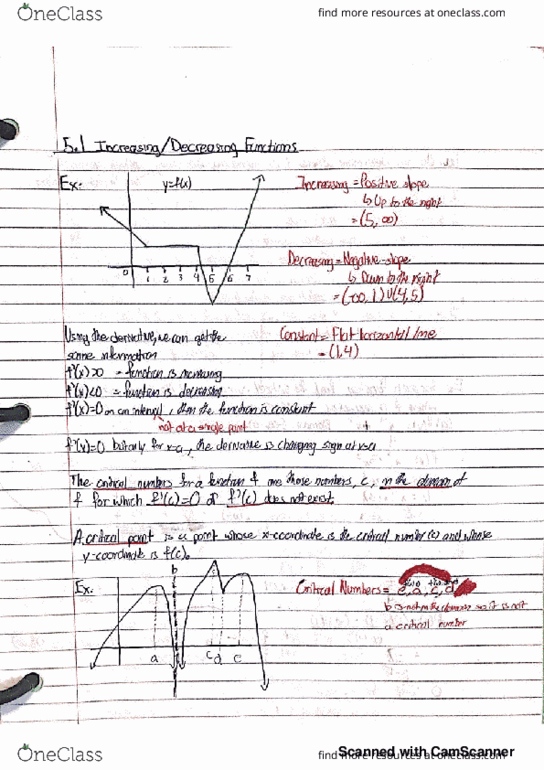 OneClass
find more resources at oneclass.com
5.1 Increasing/Decreasing Functions
Ex:
y=f(x)
Increasing = Positive slope
↳ Up to the right
= (5, ∞)
0 1 2 3 4 5 6 7
Decreasing = Negative slope
↳ Down to the right
= (-∞, 1) U (4,5)
Using the derivative, we can get the
same information
Constant = Flat horizontal line
= (1,4)
f'(x)>0 = function is increasing
f'(x)<0 = function is decreasing
f'(x)=0 on an interval, then the function is constant
not at a single point
f'(x)=0 but only for x=a, the derivative is changing sign at x=a
The critical numbers for a function f are those numbers, c, in the domain of
f for which f'(c)=0 or f'(c) does not exist.
A critical point is a point whose x-coordinate is the critical number (c) and whose
y-coordinate is f(c).
Ex.
b
a
c d e
Critical Numbers =
b is not in the domain so it is not
a critical number
OneClass
find more resources at oneclass.com
Scanned with CamScanner